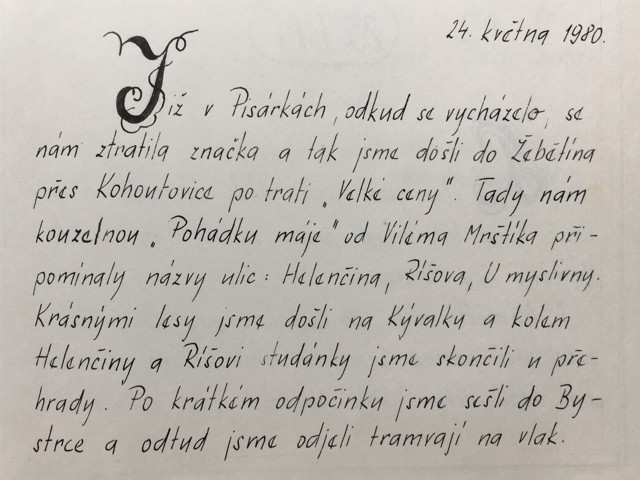 24. května 1980.
Již v Pisárkách, odkud se vycházelo, se
nám ztratila značka a tak jsme došli do Žebětína
přes Kohoutovice po trati „Velké ceny". Tady nám
kouzelnou „Pohádku máje" od Viléma Mrštíka při-
pomínaly názvy ulic: Helenčina, Ríšova, U myslivny.
Krásnými lesy jsme došli na Kývalku a kolem
Helenčiny a Ríšovi studánky jsme skončili u pře-
hrady. Po krátkém odpočinku jsme sešli do By-
strce a odtud jsme odjeli tramvají na vlak.